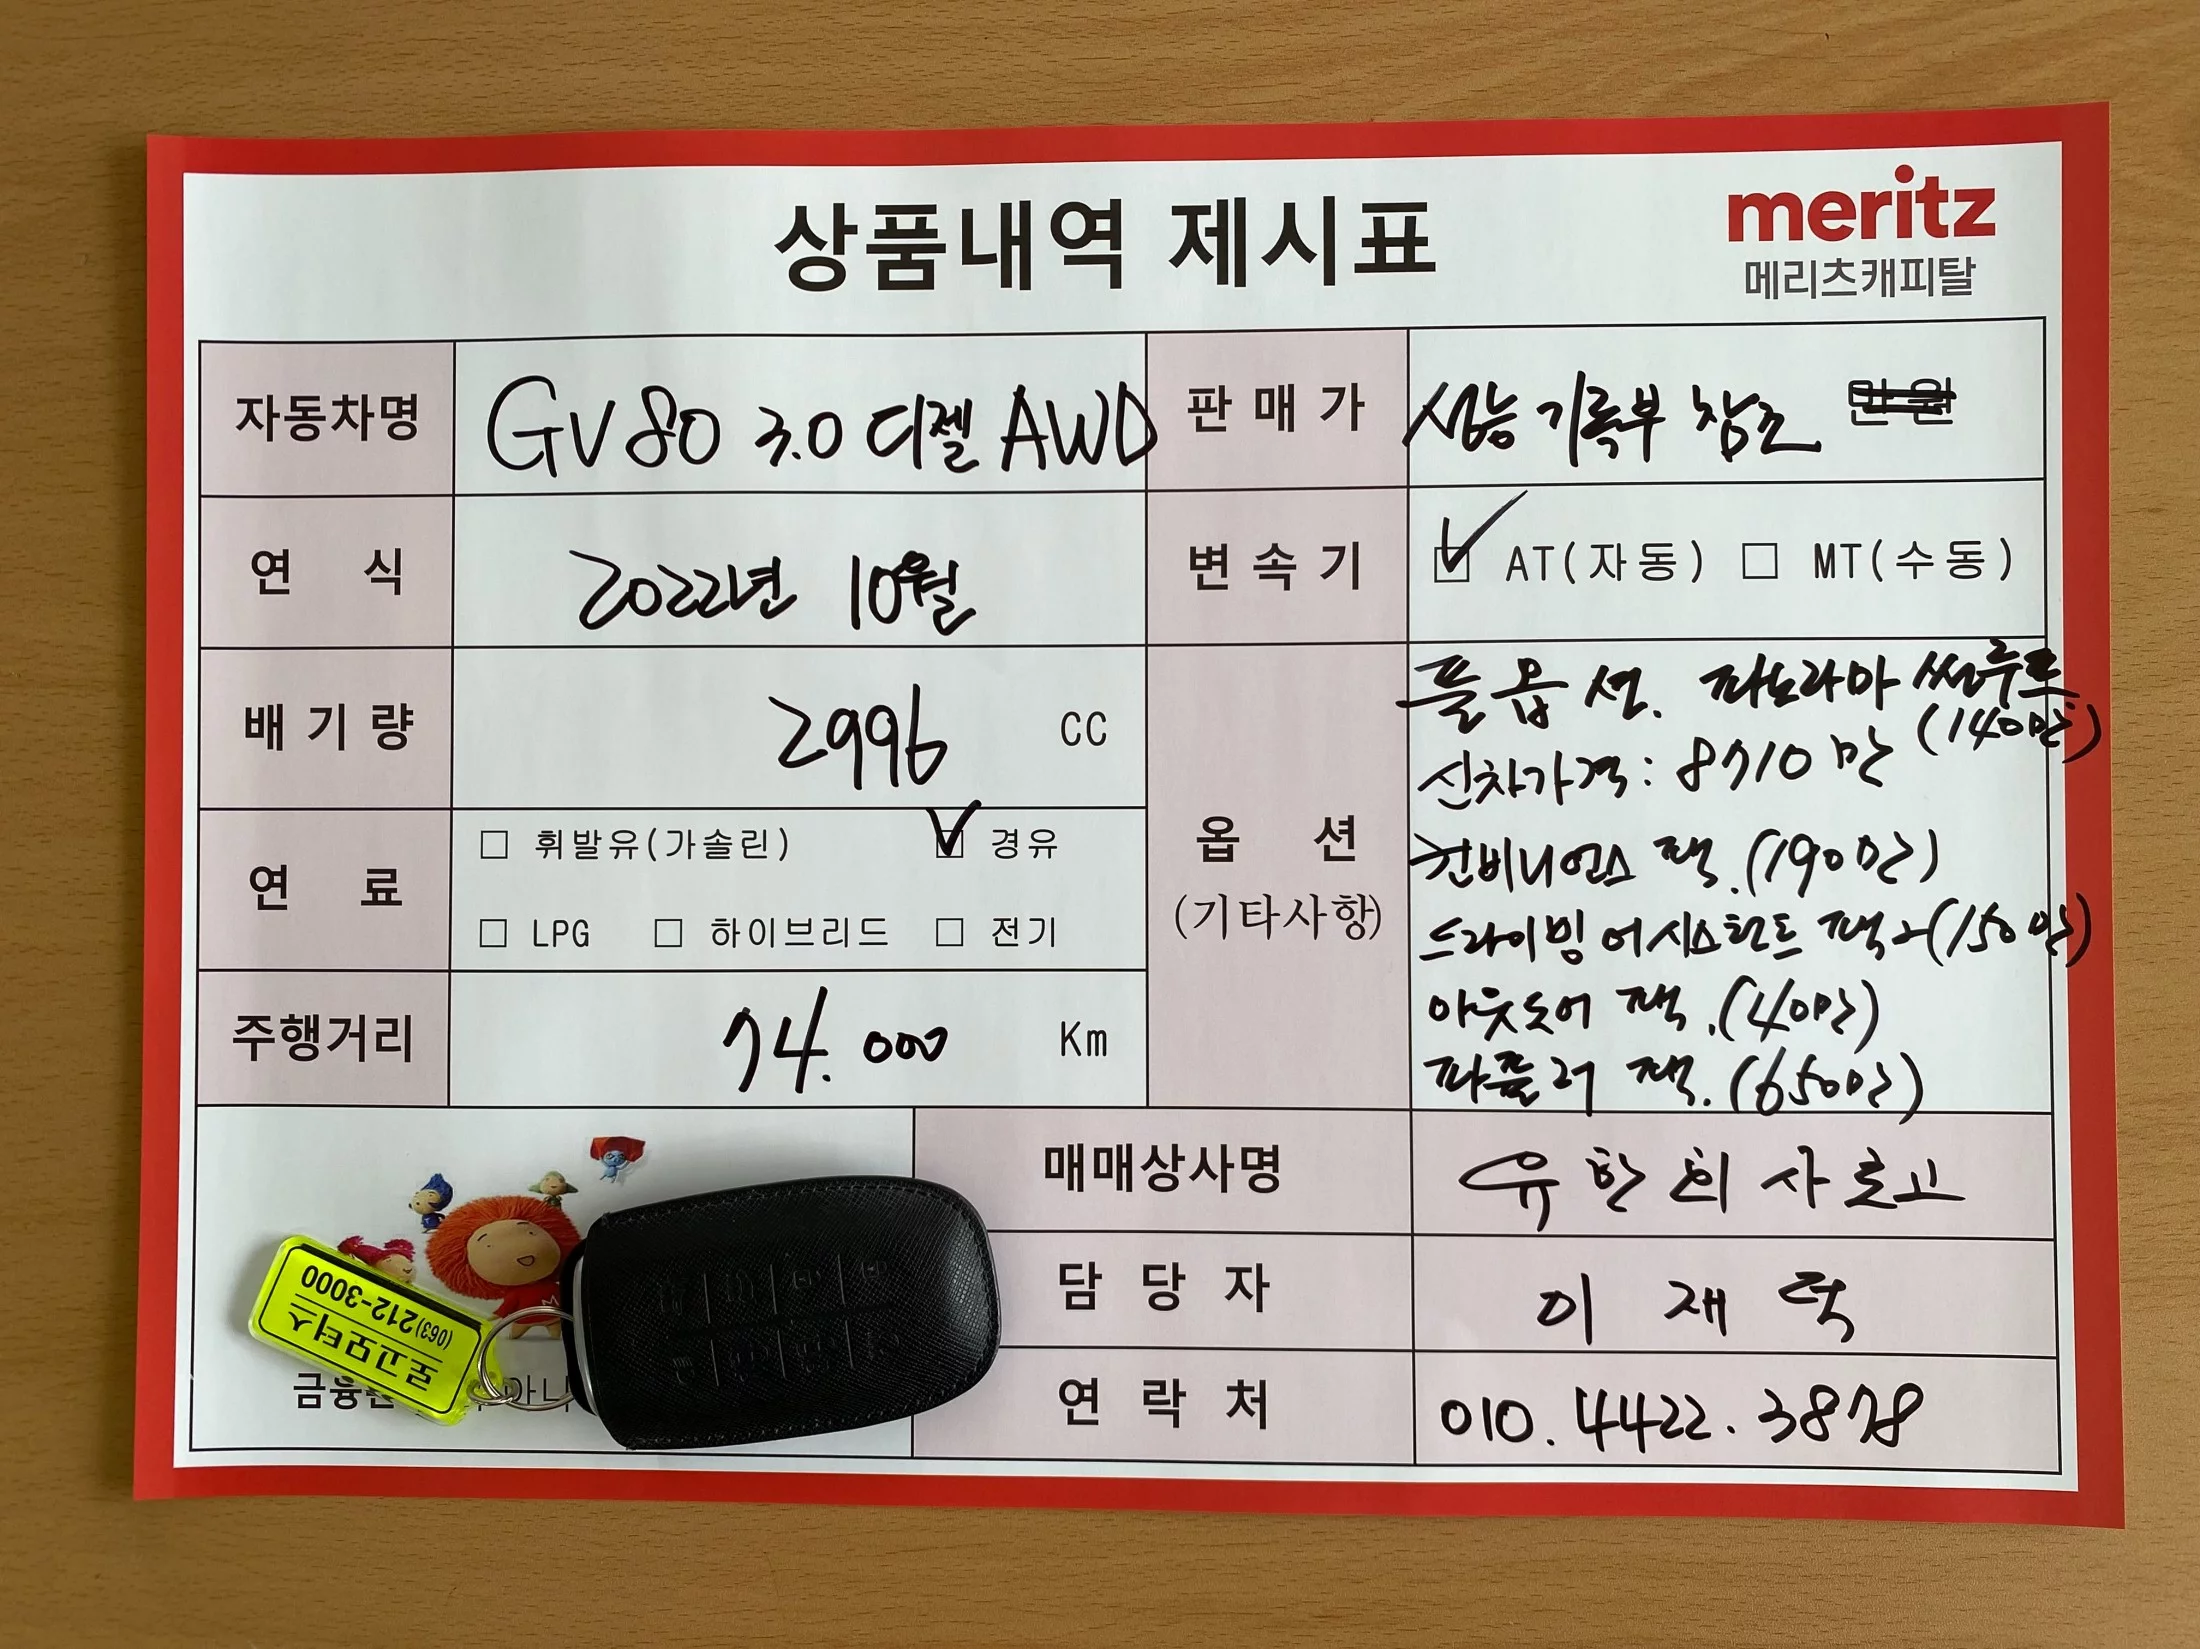 상품내역 제시표
meritz
메리츠캐피탈
자동차명 GV80 3.0 디젤 AWD
판매가 성능기록부 참조 만원
연식 2022년 10월
변속기 ☑ AT(자동) ☐ MT(수동)
배기량 2996 CC
연료 ☐ 휘발유(가솔린) ☑ 경유
☐ LPG ☐ 하이브리드 ☐ 전기
주행거리 74.000 Km
옵션
(기타사항)
풀옵션. 파노라마 썬루프
(140만)
신차가격: 8710만
컨비니언스 팩.(190만)
드라이빙 어시스턴트 팩2(150만)
아웃도어 팩.(40만)
파퓰러 팩.(650만)
매매상사명 유한회사로고
담당자 이재덕
연락처 010.4422.3878
로고모터스
(063)212-3000
금융
아니